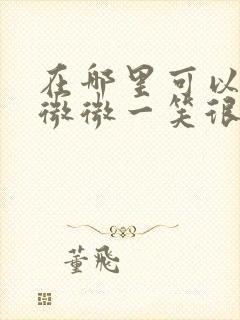 在哪里可以
微微一笑很
董飛